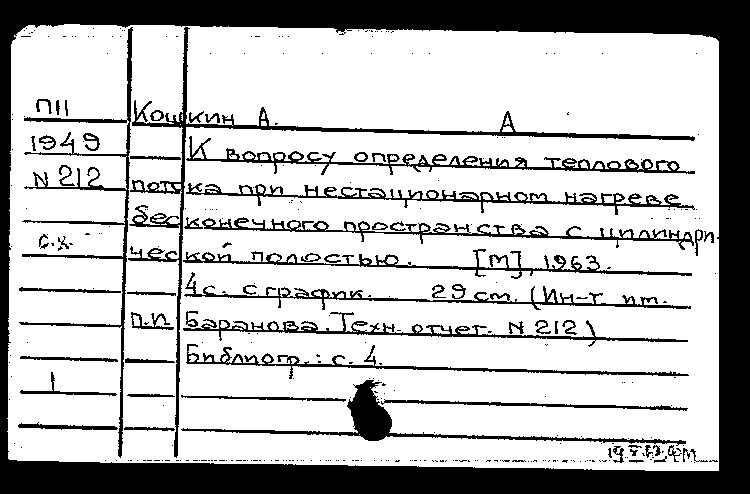 П11 Кошкин А. А
1949 К вопросу определения теплового
N 212 потока при нестационарном нагреве
бесконечного пространства с цилиндри-
с.х. ческой полостью. [М], 1963.
4с. с график. 29 см. (Ин-т им.
п.п. Баранова. Техн. отчет. N 212)
Библиогр.: с. 4.
1